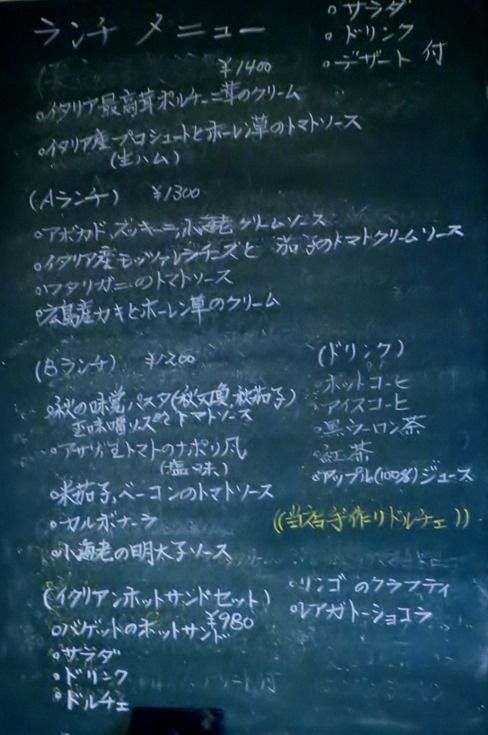 ランチ メニュー
。サラダ
。ドリンク
。デザート 付
¥1400
。イタリア最高茸ポルチーニ茸のクリーム
。イタリア産プロシュートとホーレン草のトマトソース
(生ハム)
(Aランチ) ¥1300
。アボカド、ズッキーニ、小海老クリームソース
。イタリア産モッツァレラチーズと茄子のトマトクリームソース
。ワタリガニのトマトソース
。広島産カキとホーレン草のクリーム
(Bランチ) ¥1200
。秋の味覚パスタ(秋刀魚、秋茄子)
トマトソース
。アサリ トマトのナポリ風
(塩味)
。米茄子、ベーコンのトマトソース
。カルボナーラ
。小海老の明太子ソース
(ドリンク)
。ホットコーヒ
。アイスコーヒ
。黒ウーロン茶
。紅茶
。アップル(100%)ジュース
((当店手作りドルチェ))
。リンゴのクラフティ
。レアガトーショコラ
(イタリアンホットサンドセット)
¥980
。バゲットのホットサンド
。サラダ
。ドリンク
。ドルチェ